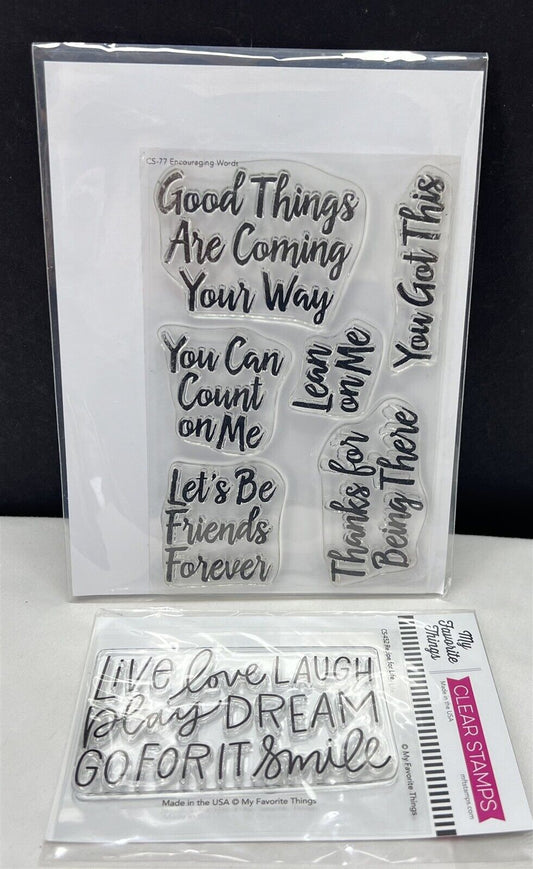 CS-77 Encouraging Words
Good Things
Are Coming
Your Way
You Got This
You Can
Count
on Me
Lean
on Me
Let's Be
Friends
Forever
Thanks for
Being There
LIVE love LAUGH
play DREAM
GO FOR IT smile
Made in the USA © My Favorite Things
CS-452
for Life
© My Favorite Things
My
Favorite
Things
Made in the USA
CLEAR STAMPS
mftstamps.com